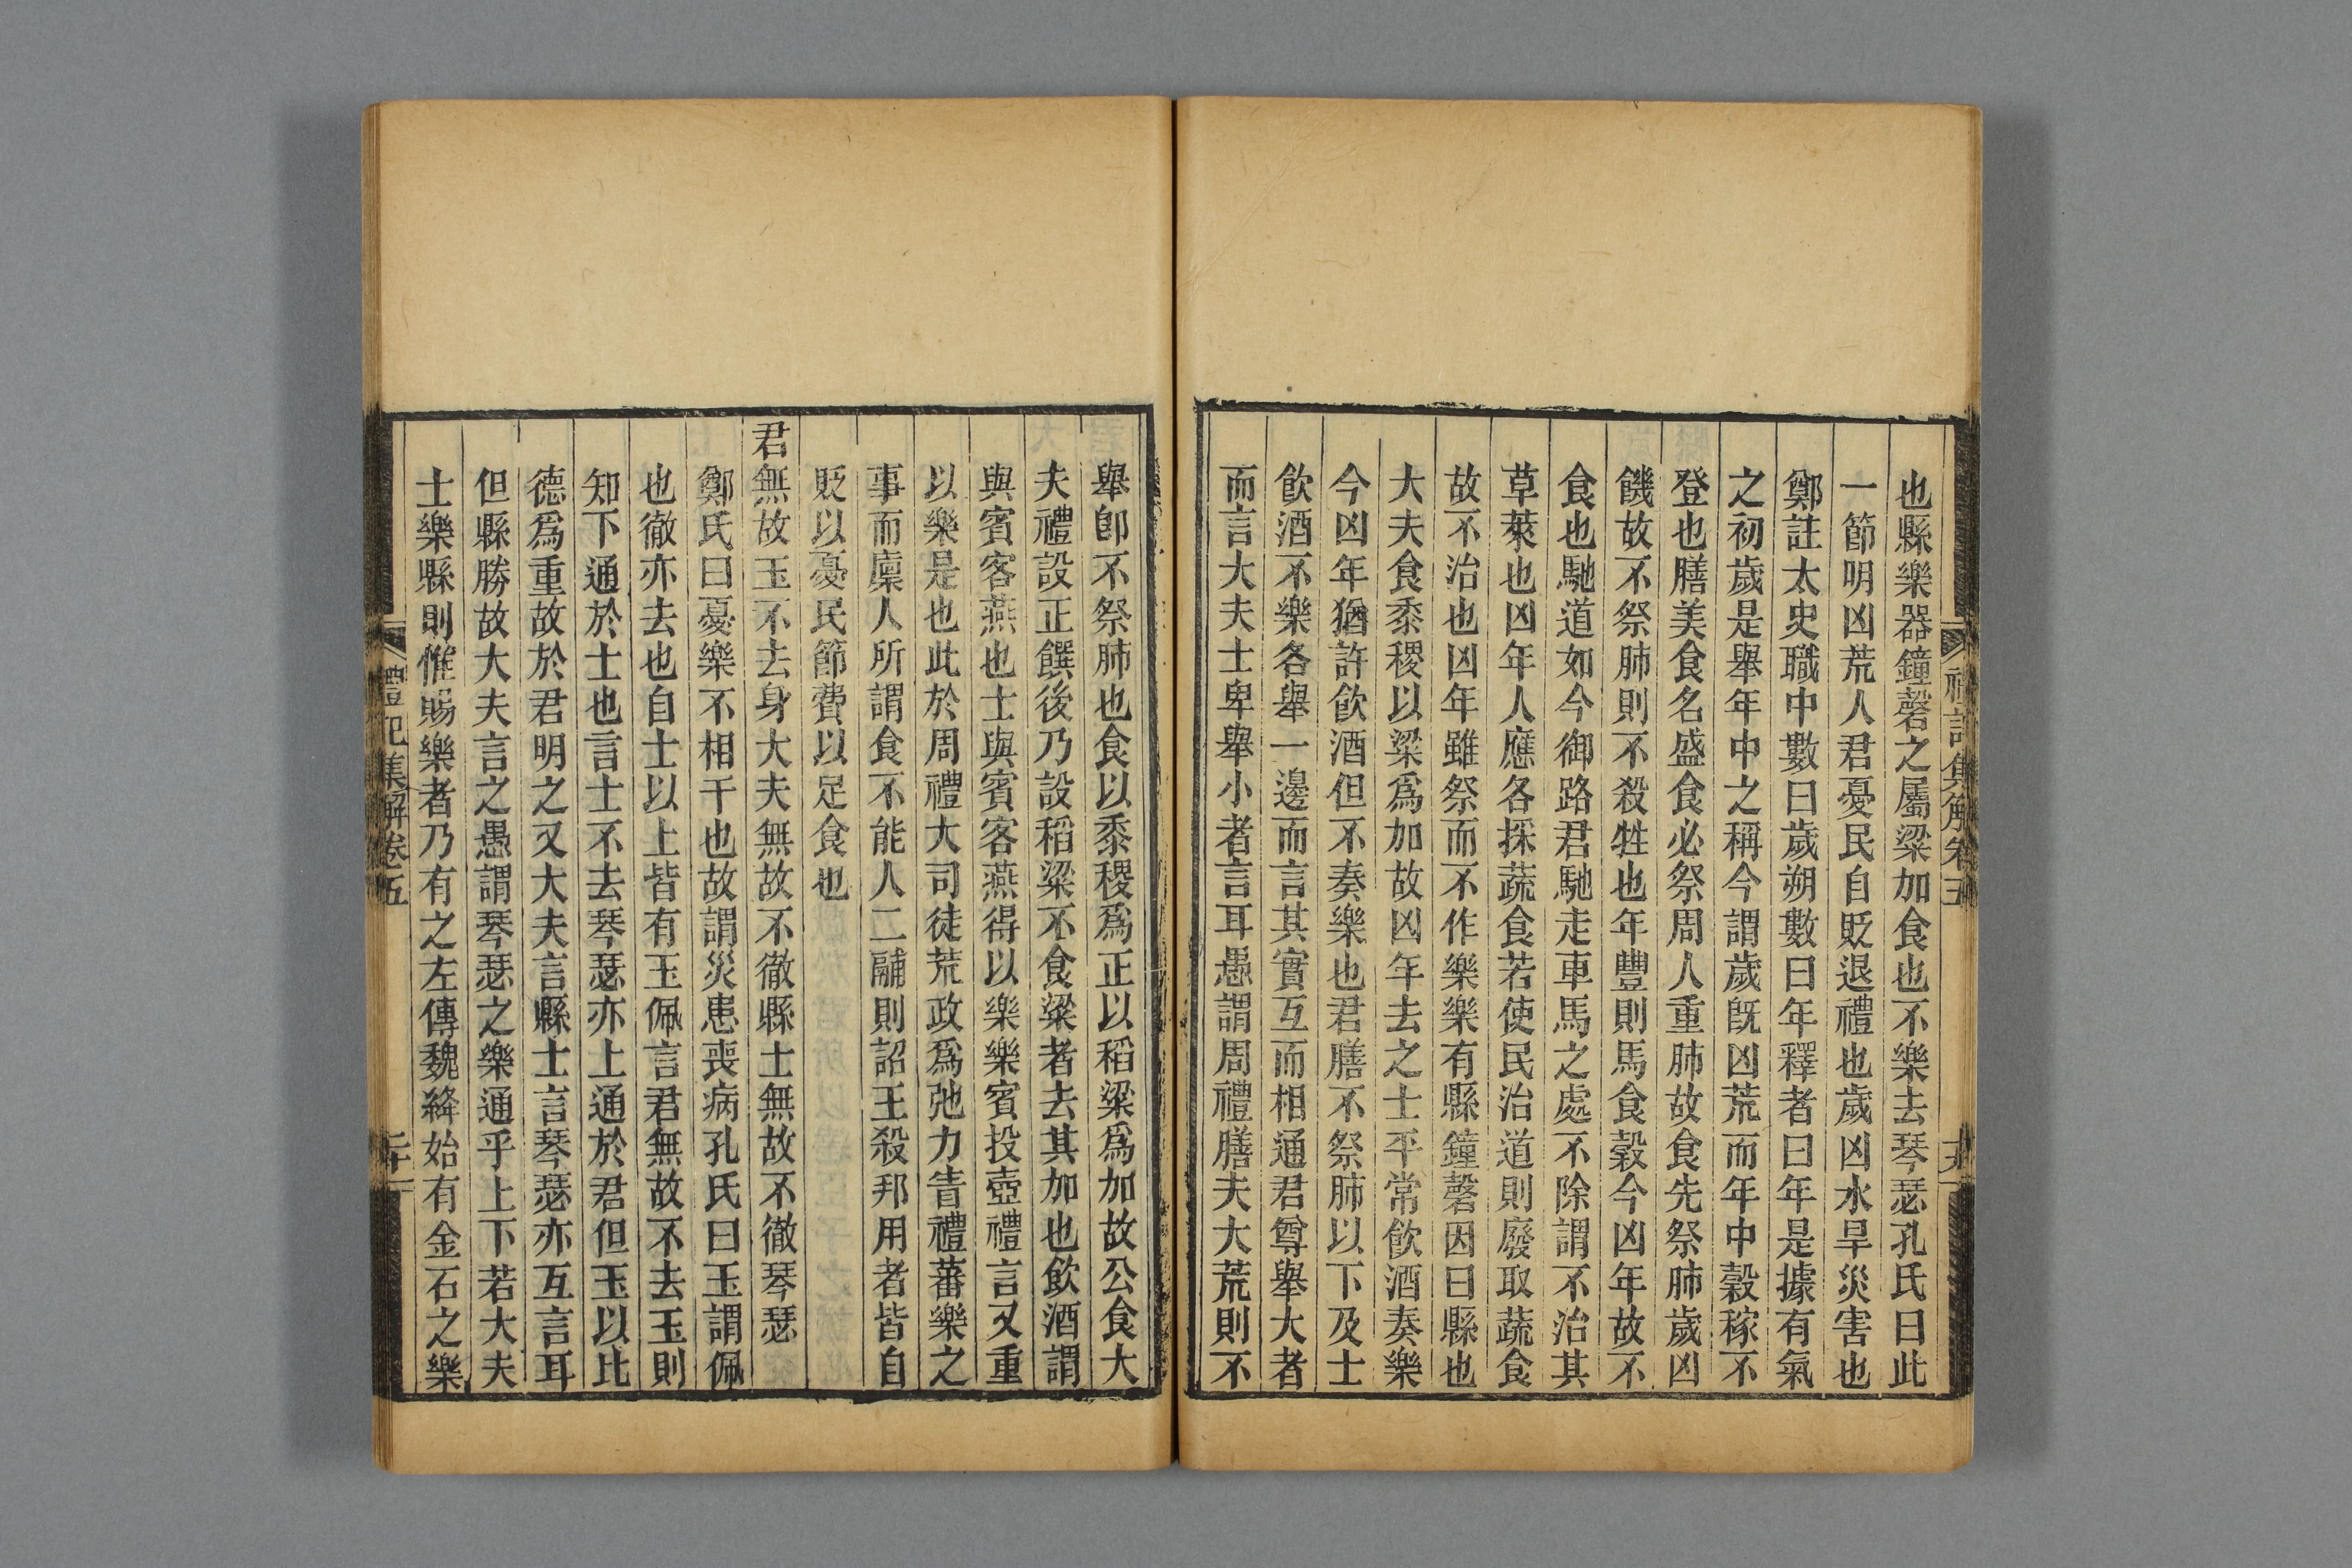 禮記集解卷五
也縣樂器鐘磬之屬粱加食也不樂去琴瑟孔氏曰此
一節明凶荒人君憂民自貶退禮也歲凶水旱災害也
鄭註太史職中數曰歲朔數曰年釋者曰年是據有氣
之初歲是舉年中之稱今謂歲旣凶荒而年中穀稼不
登也膳美食名盛食必祭周人重肺故食先祭肺歲凶
饑故不祭肺則不殺牲也年豐則馬食穀今凶年故不
食也馳道如今御路君馳走車馬之處不除謂不治其
草萊也凶年人應各採蔬食若使民治道則廢取蔬食
故不治也凶年雖祭而不作樂樂有縣鐘磬因曰縣也
大夫食黍稷以粱爲加故凶年去之士平常飮酒奏樂
今凶年猶許飮酒但不奏樂也君膳不祭肺以下及士
飮酒不樂各舉一邊而言其實互而相通君尊舉大者
而言大夫士卑舉小者言耳愚謂周禮膳夫大荒則不
舉卽不祭肺也食以黍稷爲正以稻粱爲加故公食大
夫禮設正饌後乃設稻粱不食粱者去其加也飮酒謂
與賓客燕也士與賓客燕得以樂樂賓投壺禮言又重
以樂是也此於周禮大司徒荒政爲弛力眚禮蕃樂之
事而廩人所謂食不能人二鬴則詔王殺邦用者皆自
貶以憂民節費以足食也
君無故玉不去身大夫無故不徹縣士無故不徹琴瑟
鄭氏曰憂樂不相干也故謂災患喪病孔氏曰玉謂佩
也徹亦去也自士以上皆有玉佩言君無故不去玉則
知下通於士也言士不去琴瑟亦上通於君但玉以比
德爲重故於君明之又大夫言縣士言琴瑟亦互言耳
但縣勝故大夫言之愚謂琴瑟之樂通乎上下若大夫
士樂縣則惟賜樂者乃有之左傳魏絳始有金石之樂
禮記集解卷五
二十一